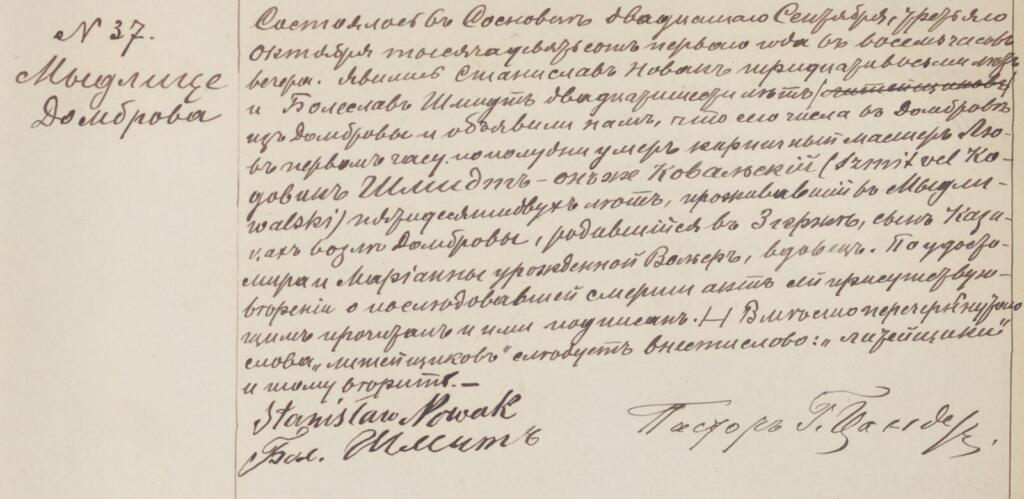 N 37.
Мыдлице
Домброва
Состоялось въ Сосновицѣ двадцатаго Сентября, третьяго
Октября тысяча девятьсотъ перваго года въ восемь часовъ
вечера. Явились Станиславъ Новакъ тридцативосьми лѣтъ
и Болеславъ Шмидтъ двадцатишести лѣтъ
изъ Домбровы и объявили намъ, что сего числа въ Домбровѣ
въ первомъ часу пополудни умеръ кирпичный мастеръ Лю-
довикъ Шмидтъ - онъ же Ковальскій (Szmit vel Ko-
walski) пятидесятидвухъ лѣтъ, проживавшій въ Мыдли-
цахъ возлѣ Домбровы, родившійся въ Згержѣ, сынъ Кази-
мира и Маріанны урожденной, вдовецъ. По удосто-
вѣреніи о послѣдовавшей смерти актъ сей присутствую-
щимъ прочитанъ и ими подписанъ. Вмѣсто перечеркнутаго
слова „литейщиковъ" слѣдуетъ внести слово: „литейщики"
и тому вѣрить. —
Stanisław Nowak
Бол. Шмитъ
Пасторъ Г. Цандеръ.